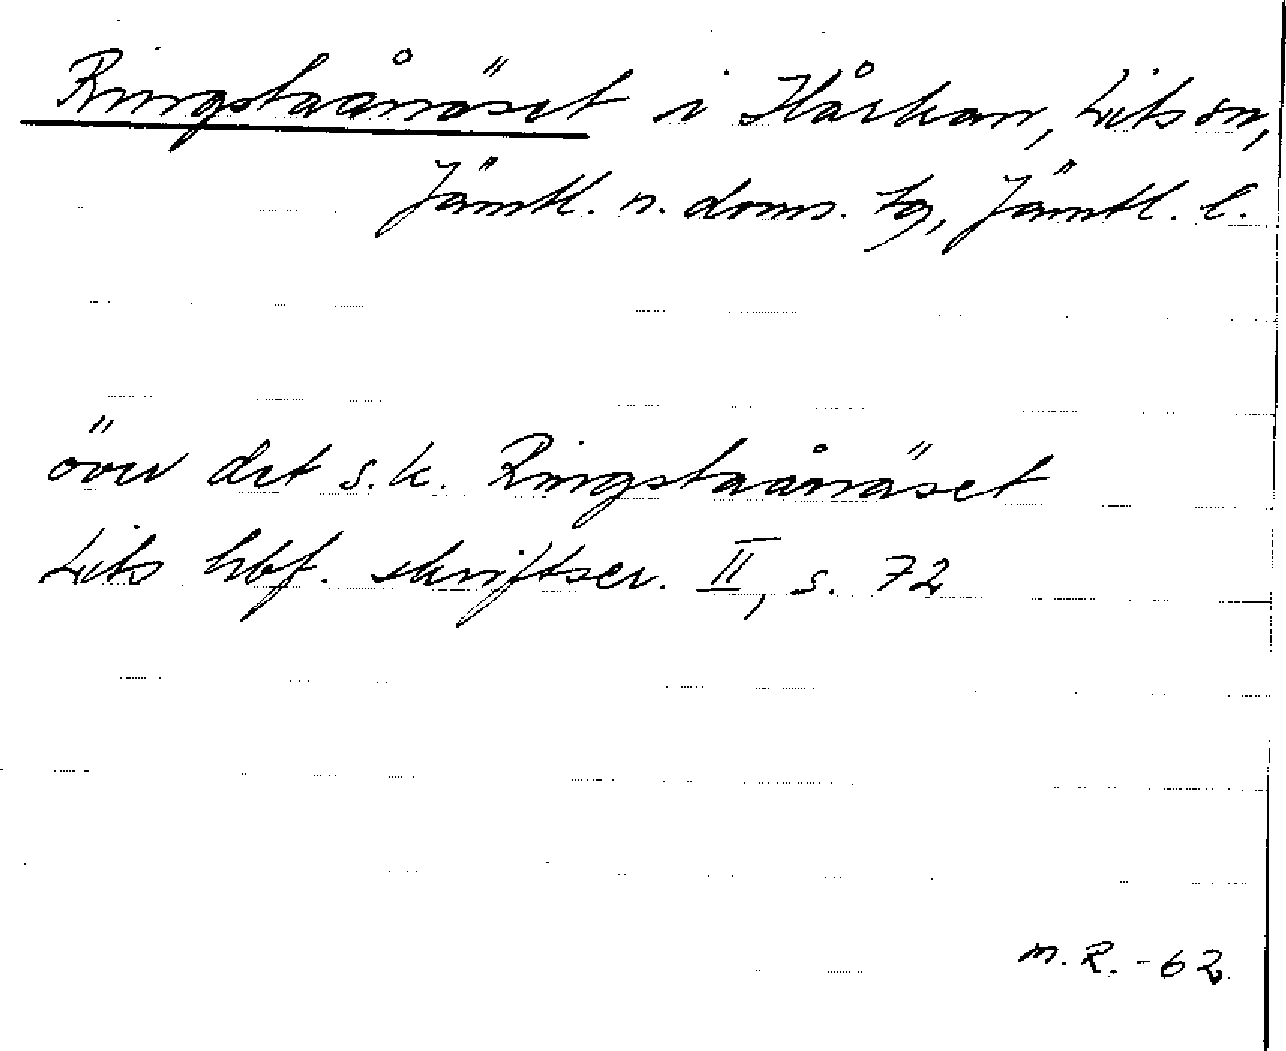 Ringstaånäset i Kårkan, Lits sn,
Jämtl. n. doms. tg, Jämtl. l.
över det s.k. Ringstaånäset
Lits hbf. skriftser. II, s. 72
M. R. -62